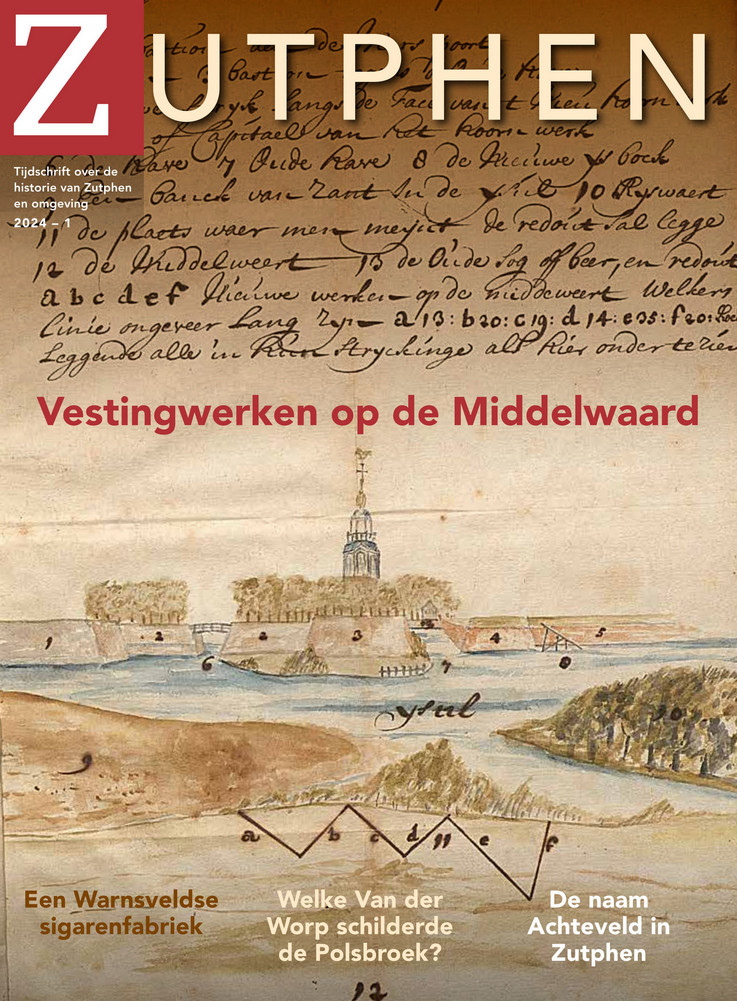 ZUTPHEN
Tijdschrift over de
historie van Zutphen
en omgeving
2024 – 1
bastion
langs de Face van
Capitaels van het hoorn werk
kave 7 Oude kave 8 de Nieuwe
banck van Zant In de 10 Ryswaert
11 de plaets waer men de redout sal legge
12 de Middelweert 13 de Oude beer, en redout
a b c d e f Nieuwe werken op de middeweert Welkers
Linie ongeveer Lang Zyn a 13: b 20: c 19: d 14: e 35: f 20:
Leggende alle in hun Stryckinge als hier onder te zien
Vestingwerken op de Middelwaard
1 2 2 3 4 5
6 7 8
ysul
10
9
a b c d 11 e f
Een Warnsveldse
sigarenfabriek
Welke Van der
Worp schilderde
de Polsbroek?
De naam
Achteveld in
Zutphen
12